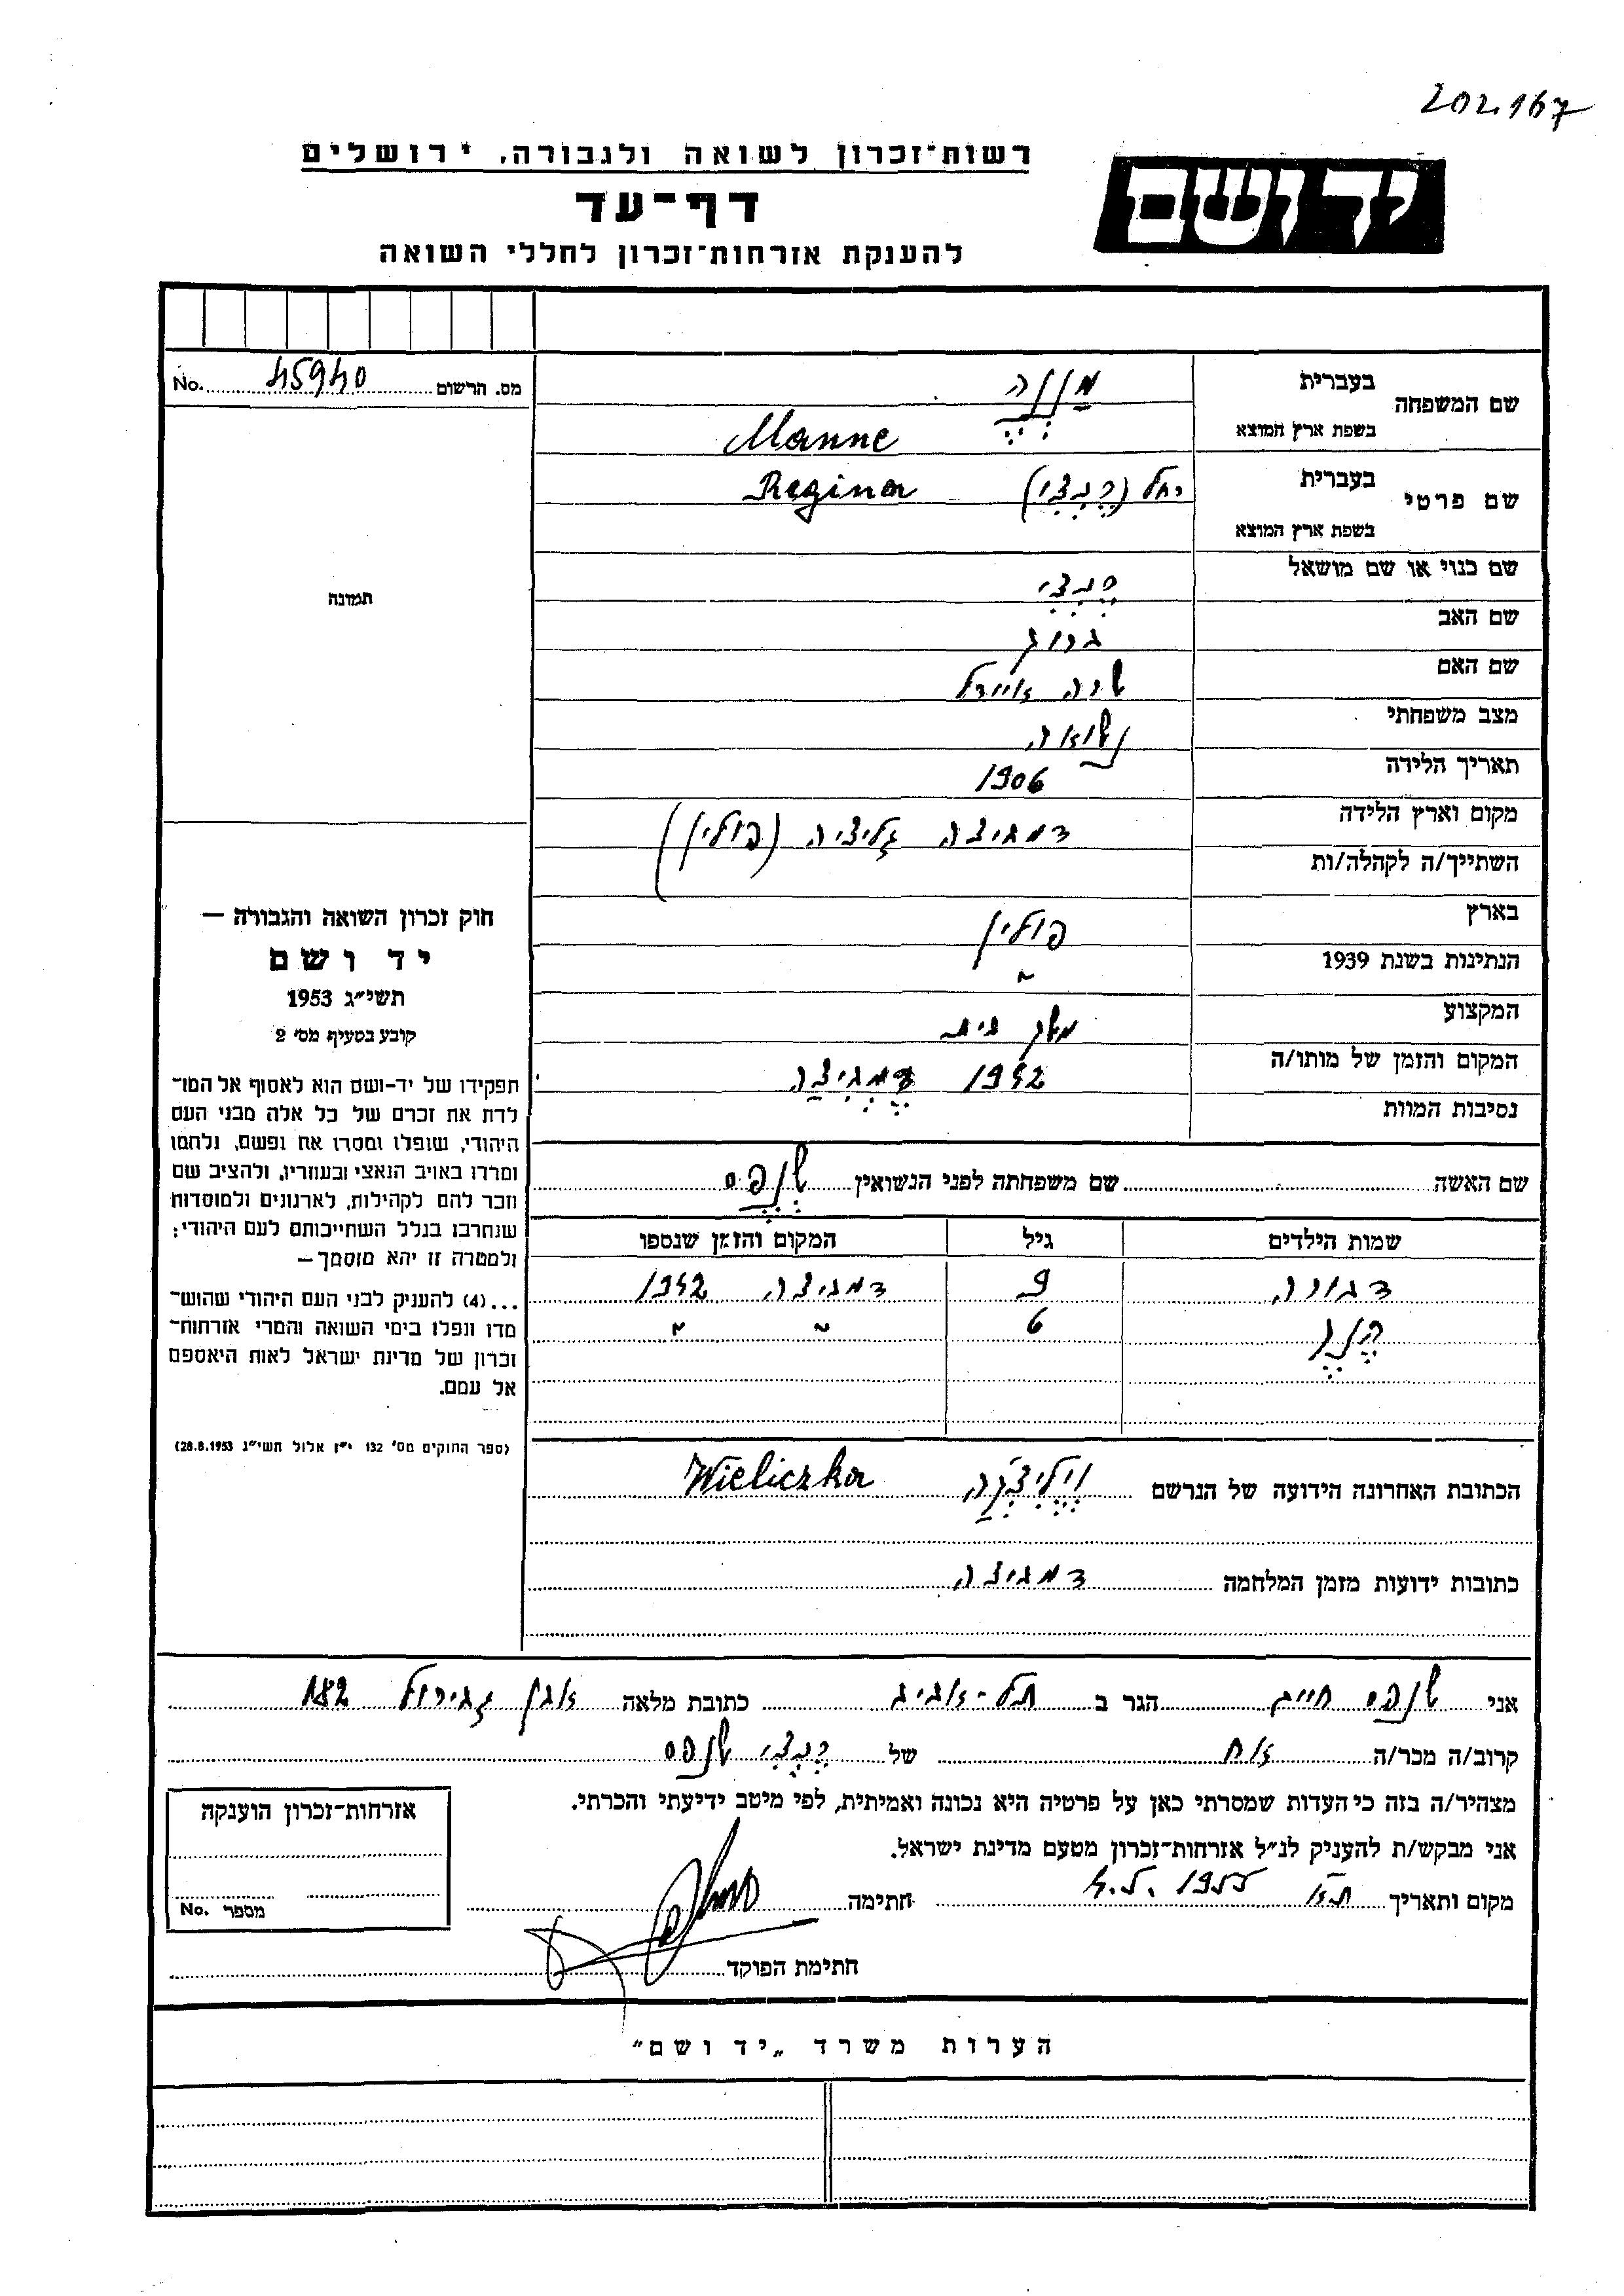 202.167
ידושם
רשות־זכרון לשואה ולגבורה, ירושלים
דף־עד
להענקת אזרחות־זכרון לחללי השואה
מס. הרשום 45940 No.
שם המשפחה
בעברית מַנֶּה
בשפת ארץ המוצא Manne
שם פרטי
בעברית רחל (רֶנְצִי) Regina
בשפת ארץ המוצא
שם כנוי או שם מושאל רֶנְצִי
שם האב ברוך
שם האם שרה אידל
מצב משפחתי נשואה
תאריך הלידה 1906
מקום וארץ הלידה דמביצה גליציה (פולין)
השתייך/ה לקהלה/ות
בארץ פולין
הנתינות בשנת 1939 "
המקצוע משק בית
המקום והזמן של מותו/ה 1942 דֶמְבִּיצָה
נסיבות המוות
שם האשה שם משפחתה לפני הנשואין
שמות הילדים גיל המקום והזמן שנספו
דבורה 9 דמביצה 1942
6 " "
הכתובת האחרונה הידועה של הנרשם וְיֶלִיצְ'קָה Wieliczka
כתובות ידועות מזמן המלחמה דמביצה
תמונה
חוק זכרון השואה והגבורה —
יד ושם
תשי״ג 1953
קובע בסעיף מס׳ 2
תפקידו של יד-ושם הוא לאסוף אל המו־
לדת את זכרם של כל אלה מבני העם
היהודי, שנפלו ומסרו את נפשם, נלחמו
ומרדו באויב הנאצי ובעוזריו, ולהציב שם
וזכר להם לקהילות, לארגונים ולמוסדות
שנחרבו בגלל השתייכותם לעם היהודי;
ולמטרה זו יהא מוסמך—
...(4) להעניק לבני העם היהודי שהוש־
מדו ונפלו בימי השואה והמרי אזרחות־
זכרון של מדינת ישראל לאות היאספם
אל עמם.
(ספר החוקים מס׳ 132 י״ז אלול תשי״ג 28.8.1953)
אני חיים הגר ב תל-אביב כתובת מלאה אבן גבירול 182
קרוב/ה מכר/ה אח של רֶנְצִי
מצהיר/ה בזה כי העדות שמסרתי כאן על פרטיה היא נכונה ואמיתית, לפי מיטב ידיעתי והכרתי.
אני מבקש/ת להעניק לנ״ל אזרחות־זכרון מטעם מדינת ישראל.
מקום ותאריך ת"א 1955 חתימה
חתימת הפוקד
אזרחות־זכרון הוענקה
מספר No.
הערות משרד „יד ושם״